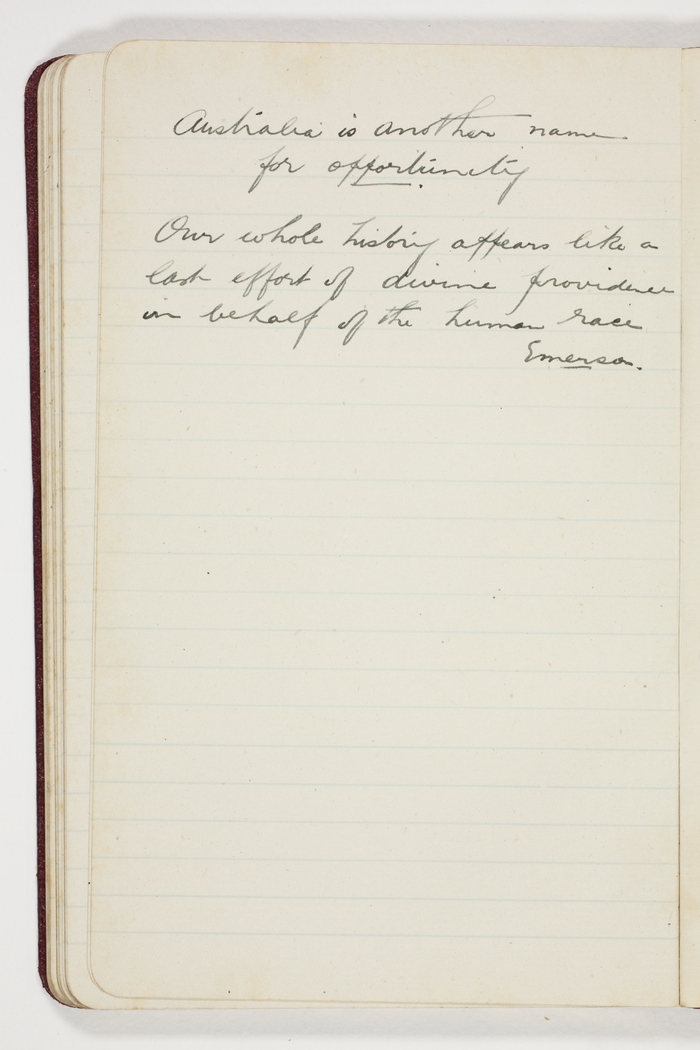 Australia is another name
for opportunity
Our whole history appears like a
last effort of divine providence
in behalf of the human race
Emerson.